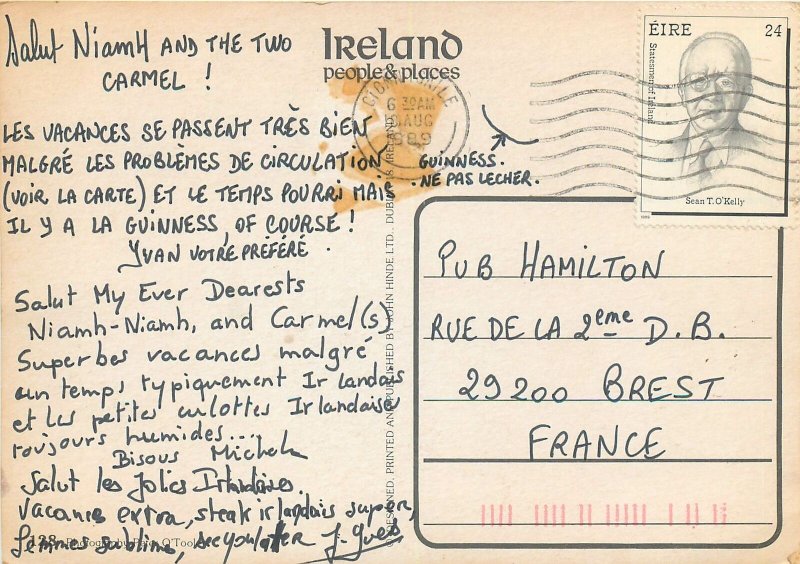 Salut Niamh AND THE TWO
CARMEL !
LES VACANCES SE PASSENT TRÈS BIEN
MALGRÉ LES PROBLÈMES DE CIRCULATION
(VOIR LA CARTE) ET LE TEMPS POURRI MAIS
IL Y A LA GUINNESS, OF COURSE !
YVAN VOTRE PRÉFÉRÉ.
Salut My Ever Dearests
Niamh-Niamh, and Carmel(s)
Superbes vacances malgré
un temps typiquement Irlandais
et les petites culottes Irlandaises
toujours humides...
Bisous Michel
Salut les Jolies Irlandaises.
Vacances extra, steak irlandais super,
femmes sublimes, see you later J-Yves
128 Photography: Peter O'Toole
IRELAND
people & places
6 30AM
AUG
1989
GUINNESS.
NE PAS LECHER.
DESIGNED, PRINTED AND PUBLISHED BY JOHN HINDE LTD., DUBLIN, IRELAND
ÉIRE 24
Statesmen of Ireland
Sean T. O'Kelly
PUB HAMILTON
RUE DE LA 2eme D.B.
29200 BREST
FRANCE